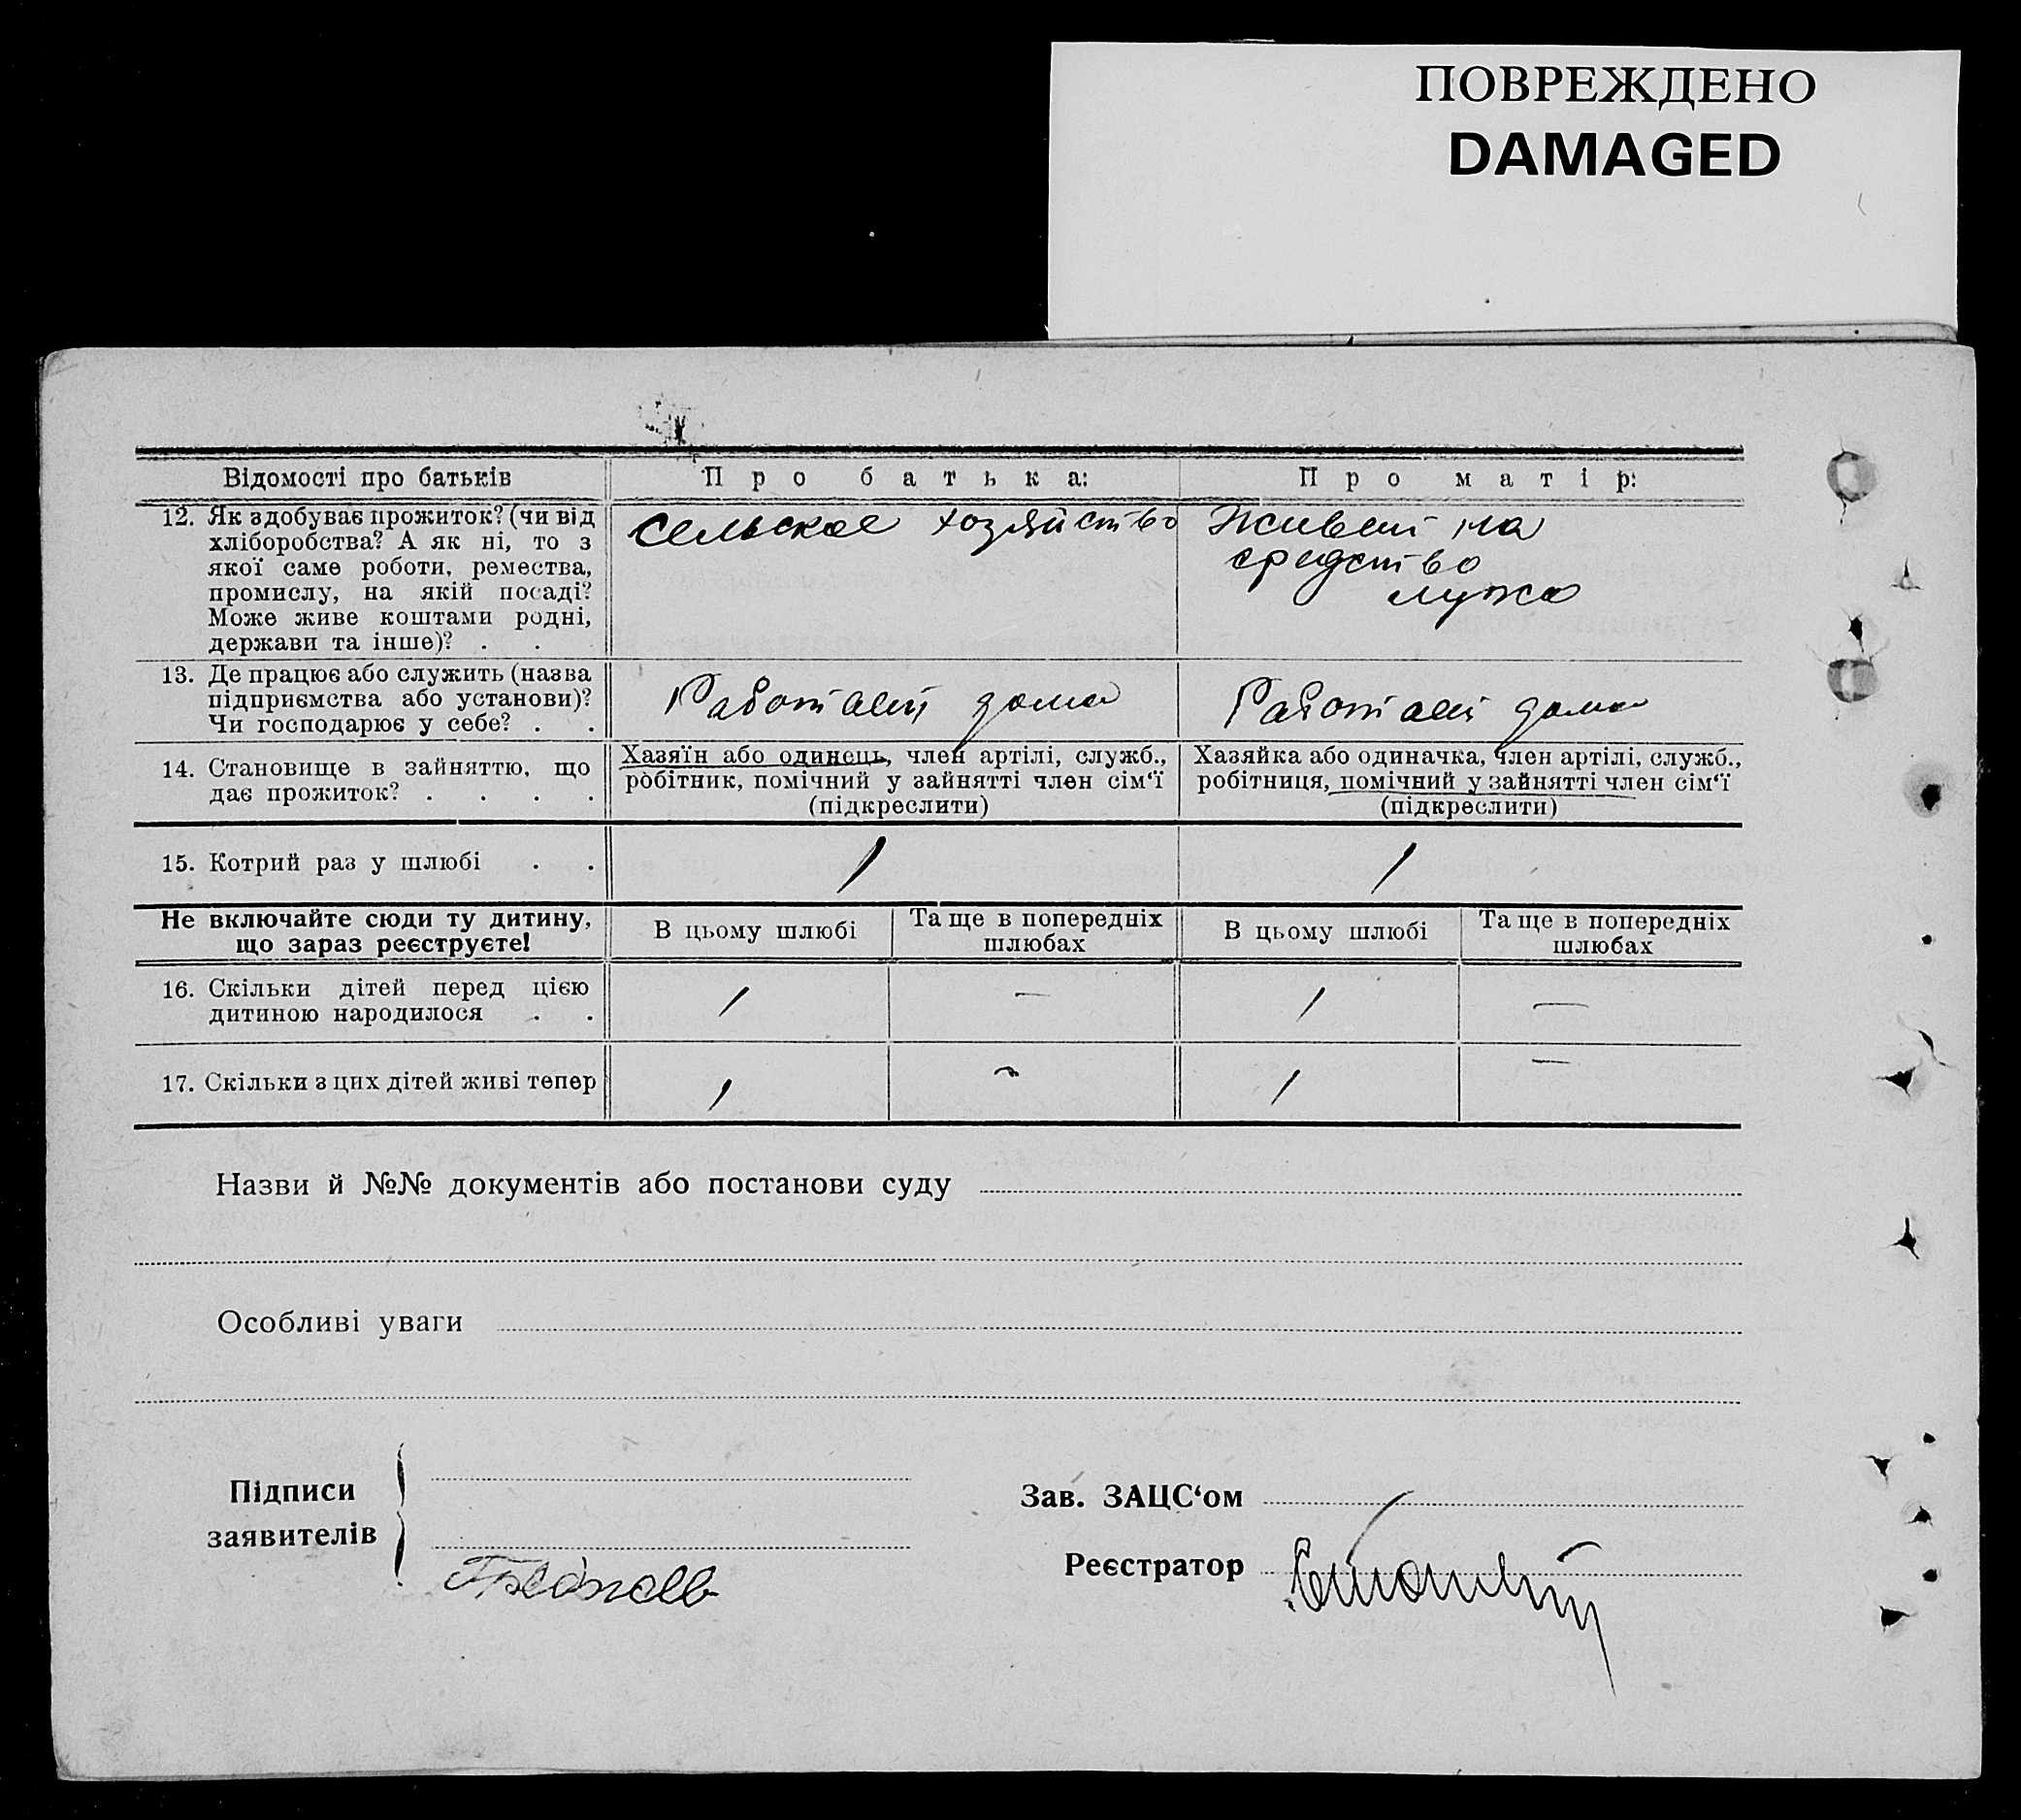 ПОВРЕЖДЕНО
DAMAGED
Відомості про батьків
Про батька:
Про матір:
12. Як здобуває прожиток? (чи від
хліборобства? А як ні, то з
якої саме роботи, ремества,
промислу, на якій посаді?
Може живе коштами родні,
держави та інше)? . .
сельское хозяйство
Живет на
средство
мужа
13. Де працює або служить (назва
підприємства або установи)?
Чи господарює у себе? . .
Работает дома
Работает дома
14. Становище в зайняттю, що
дає прожиток? . . . .
Хазяїн або одинець, член артілі, служб.,
робітник, помічний у зайнятті член сім‘ї
(підкреслити)
Хазяйка або одиначка, член артілі, служб.,
робітниця, помічний у зайнятті член сім‘ї
(підкреслити)
15. Котрий раз у шлюбі . .
1
1
Не включайте сюди ту дитину,
що зараз реєструєте!
В цьому шлюбі
Та ще в попередніх
шлюбах
В цьому шлюбі
Та ще в попередніх
шлюбах
16. Скільки дітей перед цією
дитиною народилося . .
1
—
1
—
17. Скільки з цих дітей живі тепер
1
—
1
—
Назви й №№ документів або постанови суду
Особливі уваги
Підписи
заявителів
Зав. ЗАЦС‘ом
Реєстратор